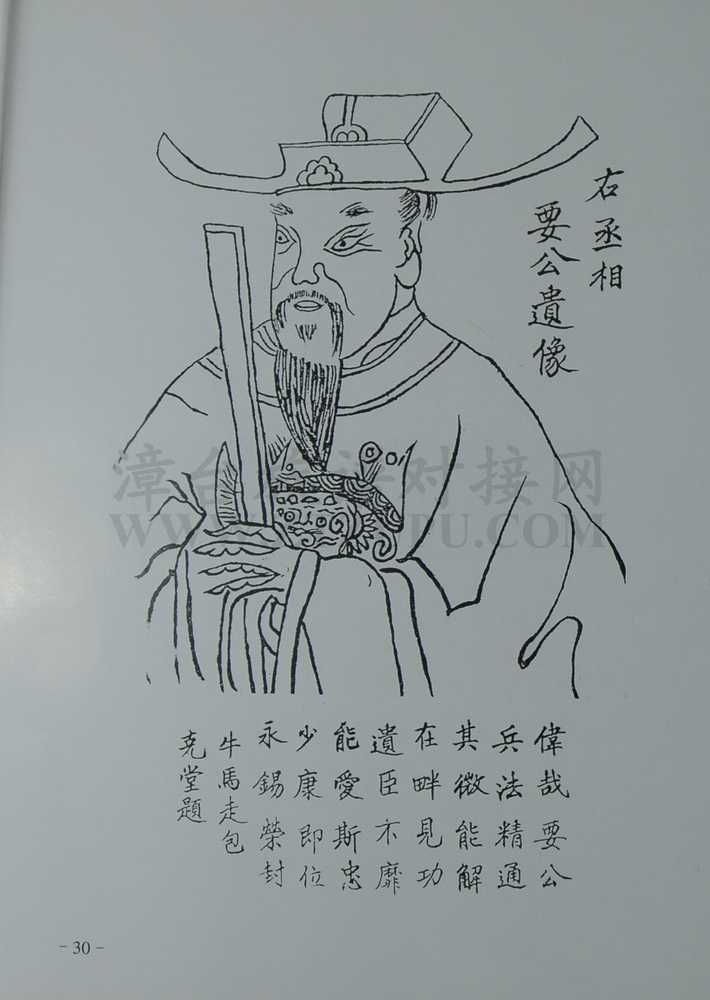 右丞相
要公遺像
偉哉要公
兵法精通
其微能解
在畔見功
遺臣不靡
能愛斯忠
少康即位
永錫榮封
牛馬走包
克堂題
漳台族谱对接网
-30-